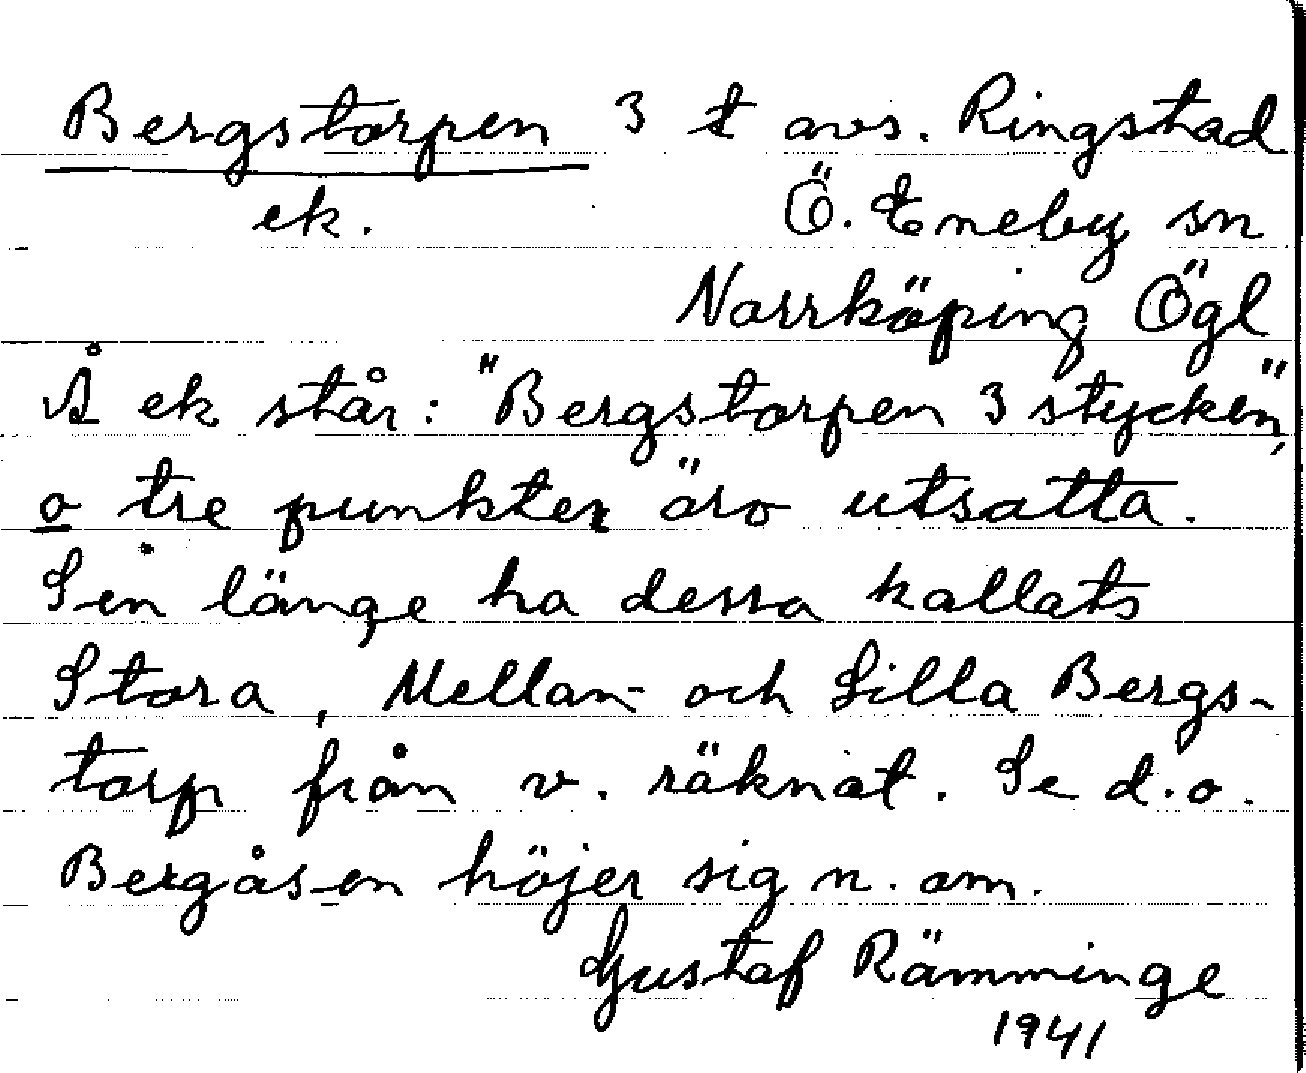 Bergstorpen 3 t avs. Ringstad
ek. Ö. Eneby sn
Norrköping Ögl
Å ek står: "Bergstorpen 3 stycken",
o tre punkter äro utsatta.
Sen länge ha dessa kallats
Stora, Mellan- och Lilla Bergs-
torp från v. räknat. Se d.o.
Bergåsen höjer sig n. om.
Gustaf Rämminge
1941